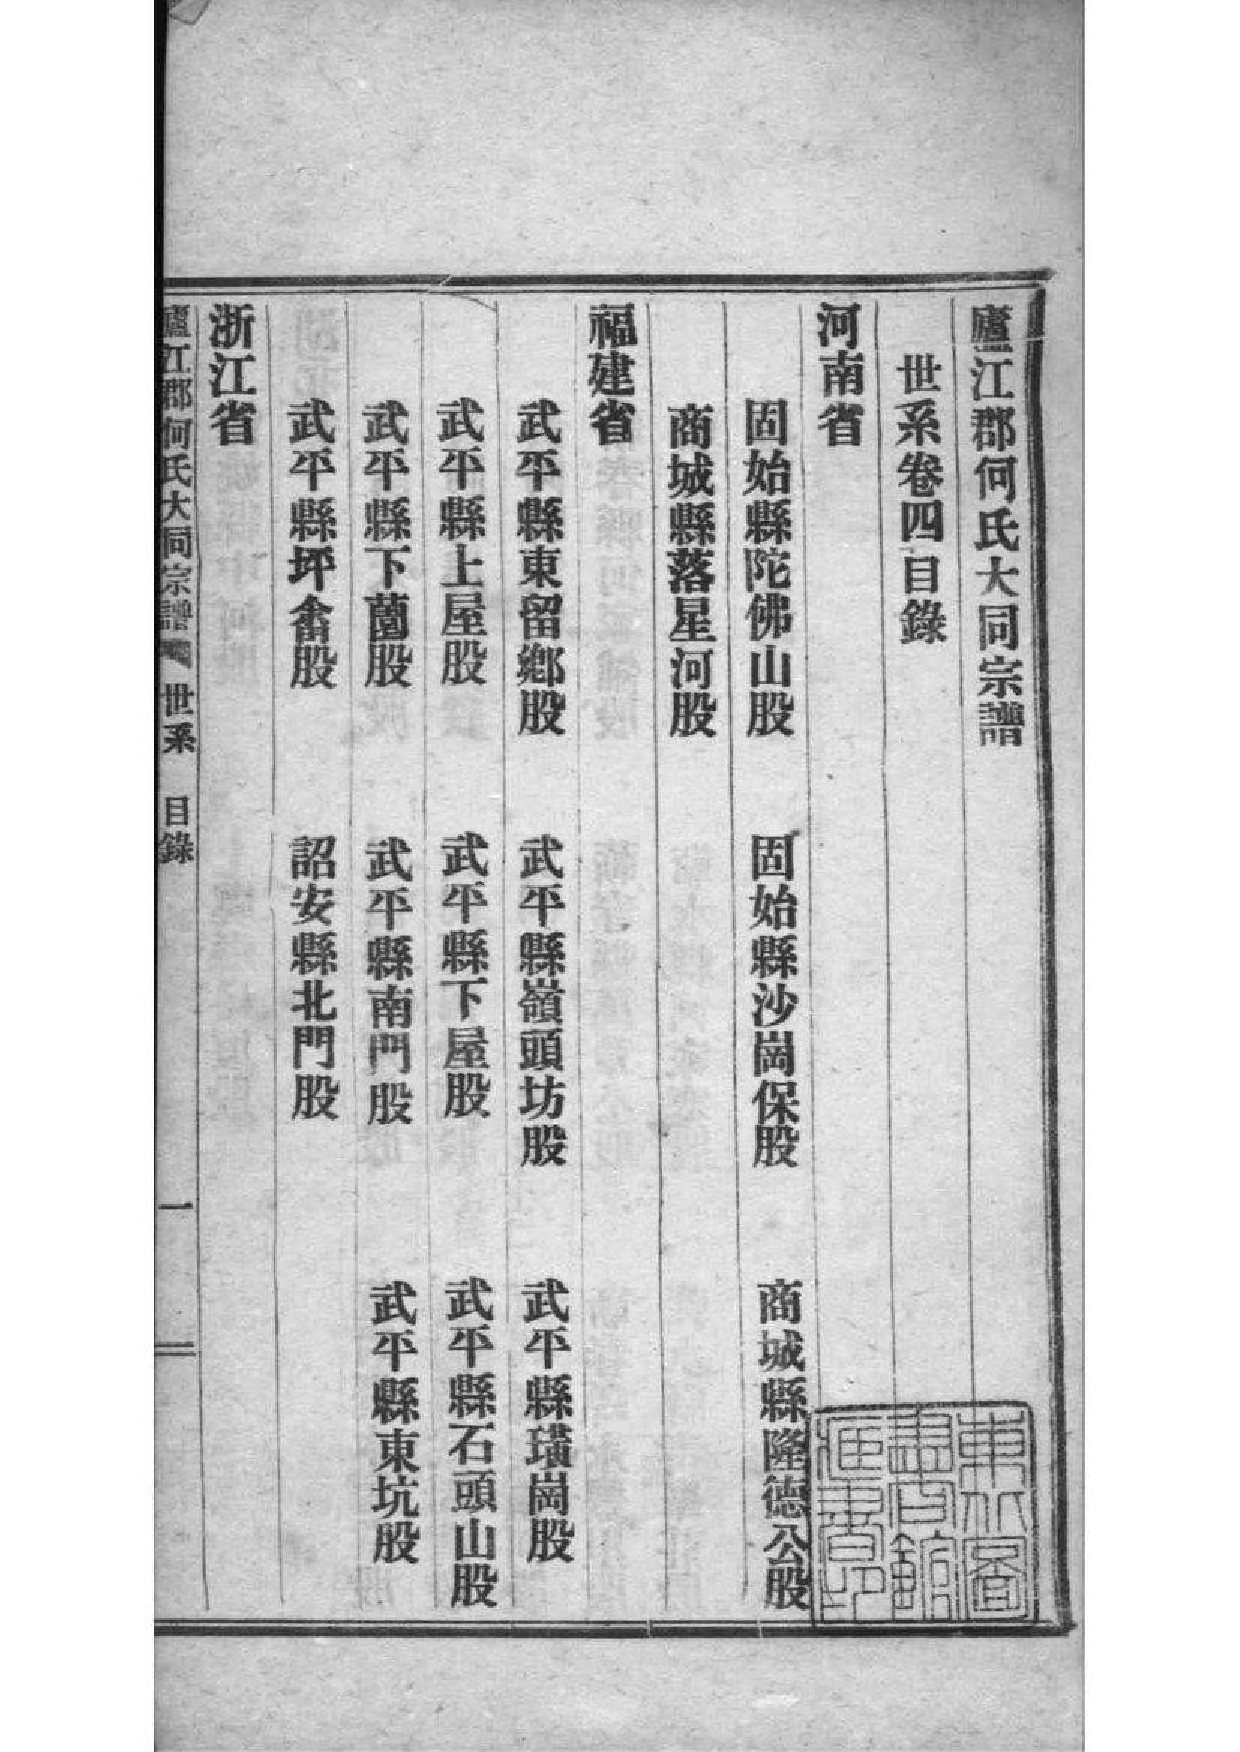 廬江郡何氏大同宗譜
世系卷四目錄
河南省
固始縣陀佛山股 固始縣沙崗保股 商城縣隆德公股
商城縣落星河股
福建省
武平縣東留鄉股 武平縣嶺頭坊股 武平縣璜崗股
武平縣上屋股 武平縣下屋股 武平縣石頭山股
武平縣下薗股 武平縣南門股 武平縣東坑股
武平縣坪畬股 詔安縣北門股
浙江省
廬江郡何氏大同宗譜 世系 目錄 一